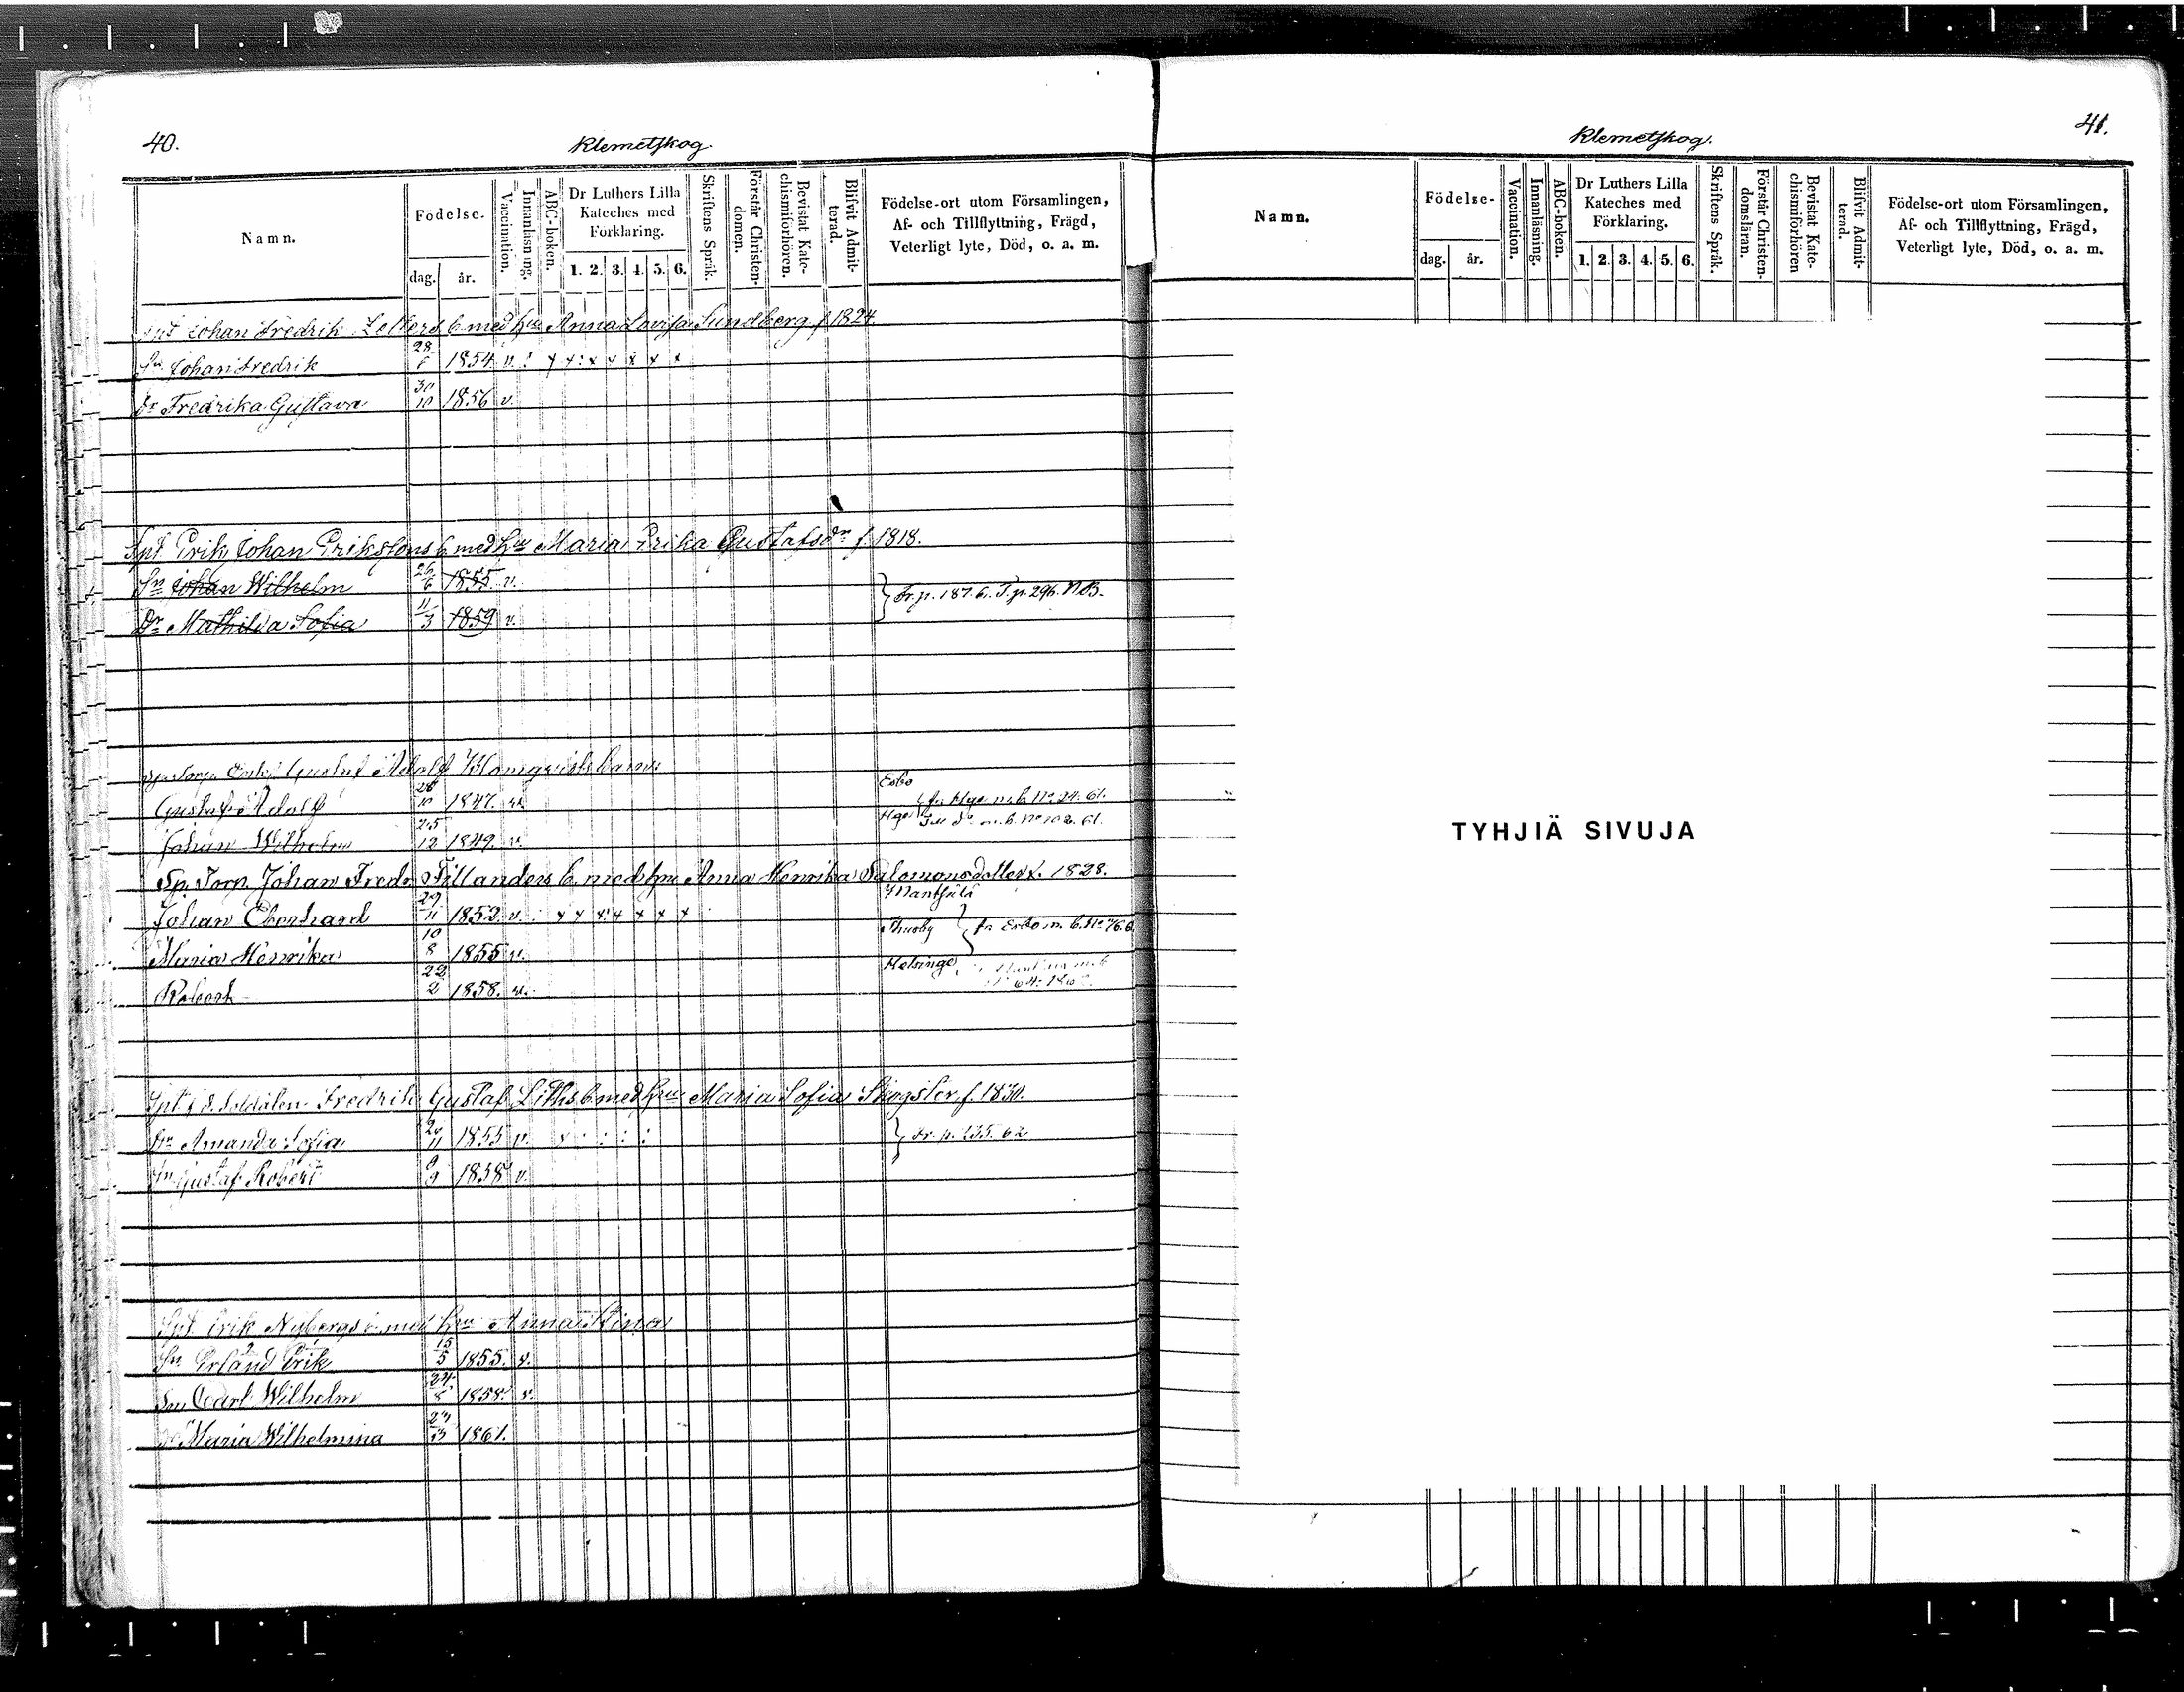 40.
Klemetskog
Namn.
Födelse-
dag. år.
Vaccination.
Innanläsning.
ABC-boken.
Dr Luthers Lilla
Kateches med
Förklaring.
1. 2. 3. 4. 5. 6.
Skriftens Språk.
Förstår Christen-
domen.
Bevistat Kate-
chismiförhören.
Blifvit Admit-
terad.
Födelse-ort utom Församlingen,
Af- och Tillflyttning, Frägd,
Veterligt lyte, Död, o. a. m.
Johan Fredrik b med hu Anna Lovisa Sundberg f 1824.
Sn Johan Fredrik 28/6 1854 v. : x x : x x x x x
Dr Fredrika Gustava 30/10 1856 v.
Spt Erik Johan Eriksons b med hu Maria Erika Gustafsdr f. 1818.
Sn Johan Wilhelm 26/6 1855 v.
Fr. p. 187. 61. T. p. 296. NB.
Dr Mathilda Sofia 11/3 1859 v.
Gustaf Adolf Blomqvists barn
Esbo
Gustaf Adolf 28/10 1847. v.
fr Hge m. b. No 24. 61.
Hge
Till do m. b. No 102. 61.
Johan Wilhelm 25/12 1849. v.
Sp. Torp. Johan Fredr Tillanders b. med hu Anna Henrika Salomonsdotter f. 1828.
Mantsälä
Johan Eberhard 29/11 1852 v. : x x x x x x x
Thusby
fr Esbo m. b. No 76.
Maria Henrika 10/8 1855 v.
Helsinge
Robert 22/2 1858. v.
Soldaten Fredrik Gustaf Liths b med hu Maria Sofia Skogster f. 1830.
Dr Amanda Sofia 11 1855 v. x : : : :
Fr. p. 235. 62
Sn Gustaf Robert 9 1858 v.
Spt Erik Nybergs b. med hu Anna Stina
Sn Erland Erik 15/5 1855. v.
Sn Carl Wilhelm 24/8 1858. v.
Maria Wilhelmina 1861.
41.
Klemetskog.
Namn.
Födelse-
dag. år.
Vaccination.
Innanläsning.
ABC-boken.
Dr Luthers Lilla
Kateches med
Förklaring.
1. 2. 3. 4. 5. 6.
Skriftens Språk.
Förstår Christen-
domsläran.
Bevistat Kate-
chismiförhören
Blifvit Admit-
terad.
Födelse-ort utom Församlingen,
Af- och Tillflyttning, Frägd,
Veterligt lyte, Död, o. a. m.
TYHJIÄ SIVUJA